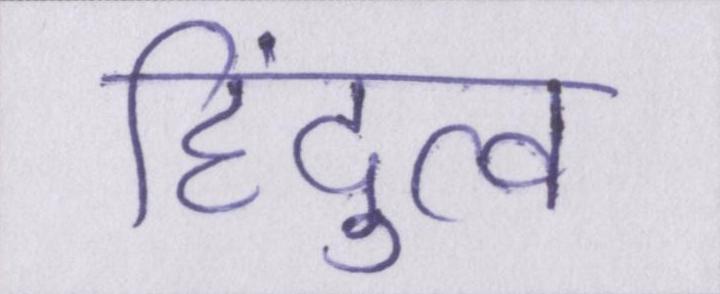 हिंदुत्व